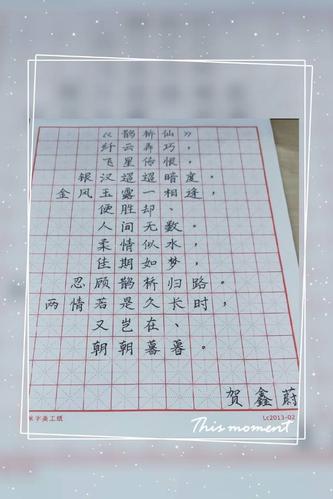 《鹊桥仙》
纤云弄巧，
飞星传恨，
银汉迢迢暗度。
金风玉露一相逢，
便胜却、
人间无数。
柔情似水，
佳期如梦，
忍顾鹊桥归路。
两情若是久长时，
又岂在、
朝朝暮暮。
贺鑫蔚
米字美工纸 Lc2013-02
This moment